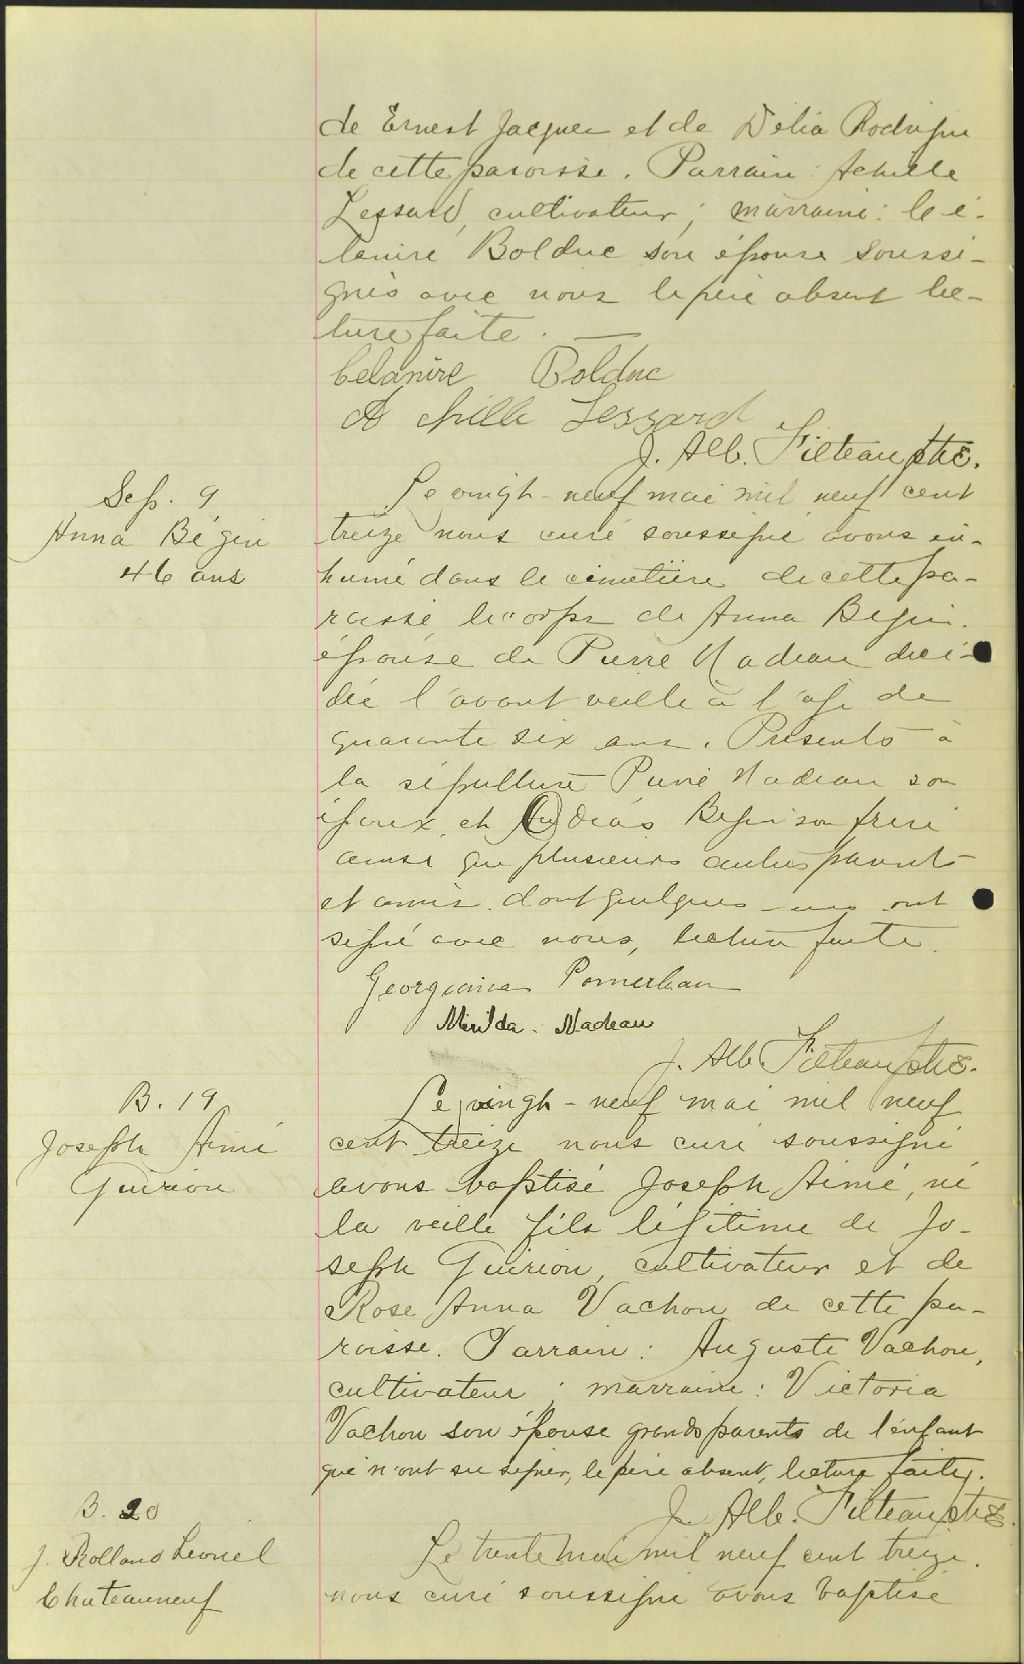 de Ernest Jacques et de Délia Rodrigue
de cette paroisse. Parrain : Achille
Lessard, cultivateur ; marraine : Cé-
lanire Bolduc son épouse soussi-
gnés avec nous le père absent lec-
ture faite. —
Celanire Bolduc
Achille Lessard
J. Alb. Filteau ptre.
Sep. 9
Anna Bégin
46 ans
Le vingt-neuf mai mil neuf cent
treize nous curé soussigné avons in-
humé dans le cimetière de cette pa-
roisse le corps de Anna Begin
épouse de Pierre Nadeau décé-
dée l'avant veille à l'age de
quarante six ans. Présents à
la sépulture Pierre Nadeau son
époux et Begin son frère
ainsi que plusieurs autres parents
et amis dont quelques-uns ont
signé avec nous, lecture faite.
Georgianna Pomerleau
Mérilda Nadeau
J. Alb. Filteau ptre.
B. 19
Joseph Aimé
Guirion
Le vingt-neuf mai mil neuf
cent treize nous curé soussigné
avons baptisé Joseph Aimé, né
la veille fils légitime de Jo-
seph Guirion, cultivateur et de
Rose Anna Vachon de cette pa-
roisse. Parrain : Auguste Vachon,
cultivateur ; marraine : Victoria
Vachon son épouse grands parents de l'enfant
qui n'ont su signer, le père absent, lecture faite.
J. Alb. Filteau ptre.
B. 20
J. Rolland Leonel
Chateauneuf
Le trente mai mil neuf cent treize
nous curé soussigné avons baptisé